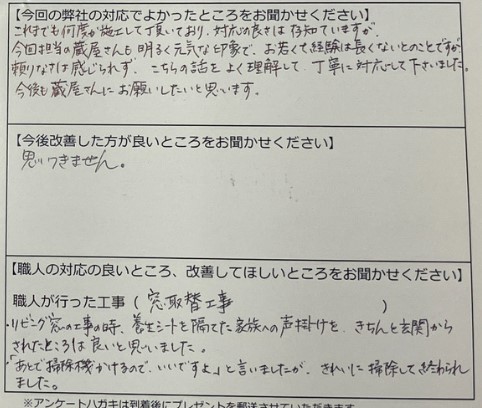 【今回の弊社の対応でよかったところをお聞かせください】
これまでも何度か施工して頂いており、対応の良さは存知ていますが、
今回担当の蔵屋さんも明るく元気な印象で、お若くて経験は長くないとのことですが
頼りなさは感じられず、こちらの話をよく理解して、丁寧に対応して下さいました。
今後も蔵屋さんにお願いしたいと思います。
【今後改善した方が良いところをお聞かせください】
思いつきません。
【職人の対応の良いところ、改善してほしいところをお聞かせください】
職人が行った工事（窓取替工事）
・リビング窓の工事の時、養生シートを隔てた家族への声掛けを、きちんと玄関から
されたところは良いと思いました。
・「あとで掃除機かけるので、いいですよ」と言いましたが、きれいに掃除して終わられ
ました。
※アンケートハガキは到着後にプレゼントを郵送させていただきます